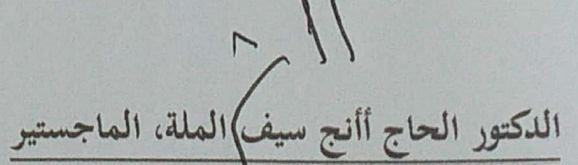 الدكتور الحاج أأنج سيف الملة، الماجستير